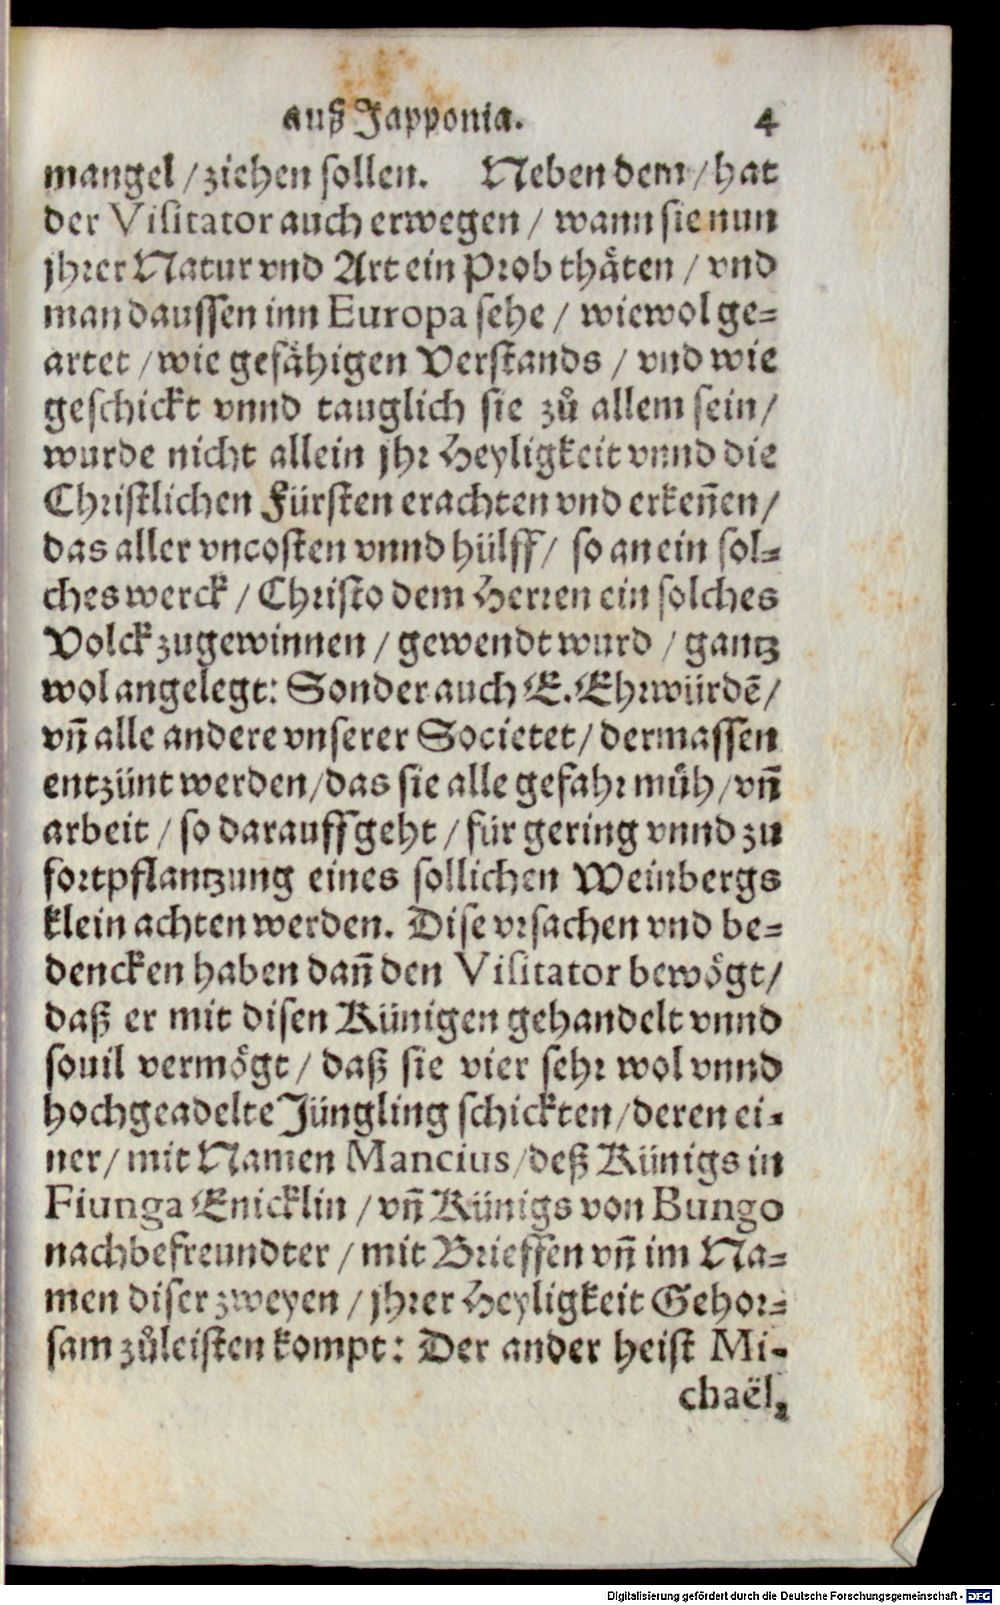 auß Japponia. 4
mangel / ziehen sollen. Neben dem / hat
der Visitator auch erwegen / wann sie nun
jhrer Natur vnd Art ein Prob thäten / vnd
man daussen inn Europa sehe / wie wol ge=
artet / wie gefähigen Verstands / vnd wie
geschickt vnnd tauglich sie zů allem sein /
wurde nicht allein jhr Heyligkeit vnnd die
Christlichen Fürsten erachten vnd erkeñen /
das aller vncosten vnnd hülff / so an ein sol=
ches werck / Christo dem Herren ein solches
Volck zugewinnen / gewendt wurd / gantz
wol angelegt: Sonder auch E. Ehrwürdē /
vñ alle andere vnserer Societet / dermassen
entzünt werden / das sie alle gefahr müh / vñ
arbeit / so darauff geht / für gering vnnd zu
fortpflantzung eines sollichen Weinbergs
klein achten werden. Dise vrsachen vnd be=
dencken haben dañ den Visitator bewögt /
daß er mit disen Künigen gehandelt vnnd
souil vermögt / daß sie vier sehr wol vnnd
hochgeadelte Jüngling schickten / deren ei=
ner / mit Namen Mancius / deß Künigs in
Fiunga Enicklin / vñ Künigs von Bungo
nachbefreundter / mit Brieffen vñ im Na=
men diser zweyen / jhrer Heyligkeit Gehor=
sam zůleisten kompt: Der ander heist Mi-
chaël,
Digitalisierung gefördert durch die Deutsche Forschungsgemeinschaft - DFG